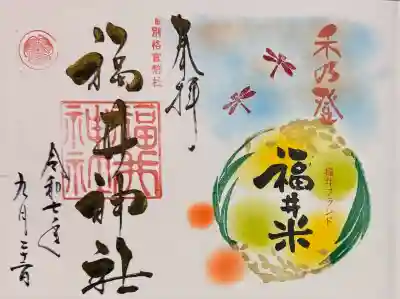 禾乃登
福井ブランド
福井米
奉拝
旧別格官幣社
福井神社
福井
神社
令和七年
九月